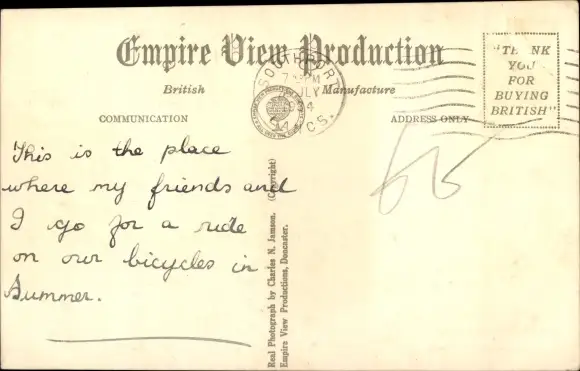 Empire View Production
British Manufacture
COMMUNICATION
ADDRESS ONLY
"THANK
YOU
FOR
BUYING
BRITISH"
SOUTHPORT
This is the place
where my friends and
I go for a ride
on our bicycles in
Summer.
Real Photograph by Charles N. Jamson. (Copyright)
Empire View Productions, Doncaster.